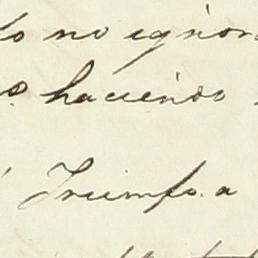 no ignor
haciendo
Triumfo. a